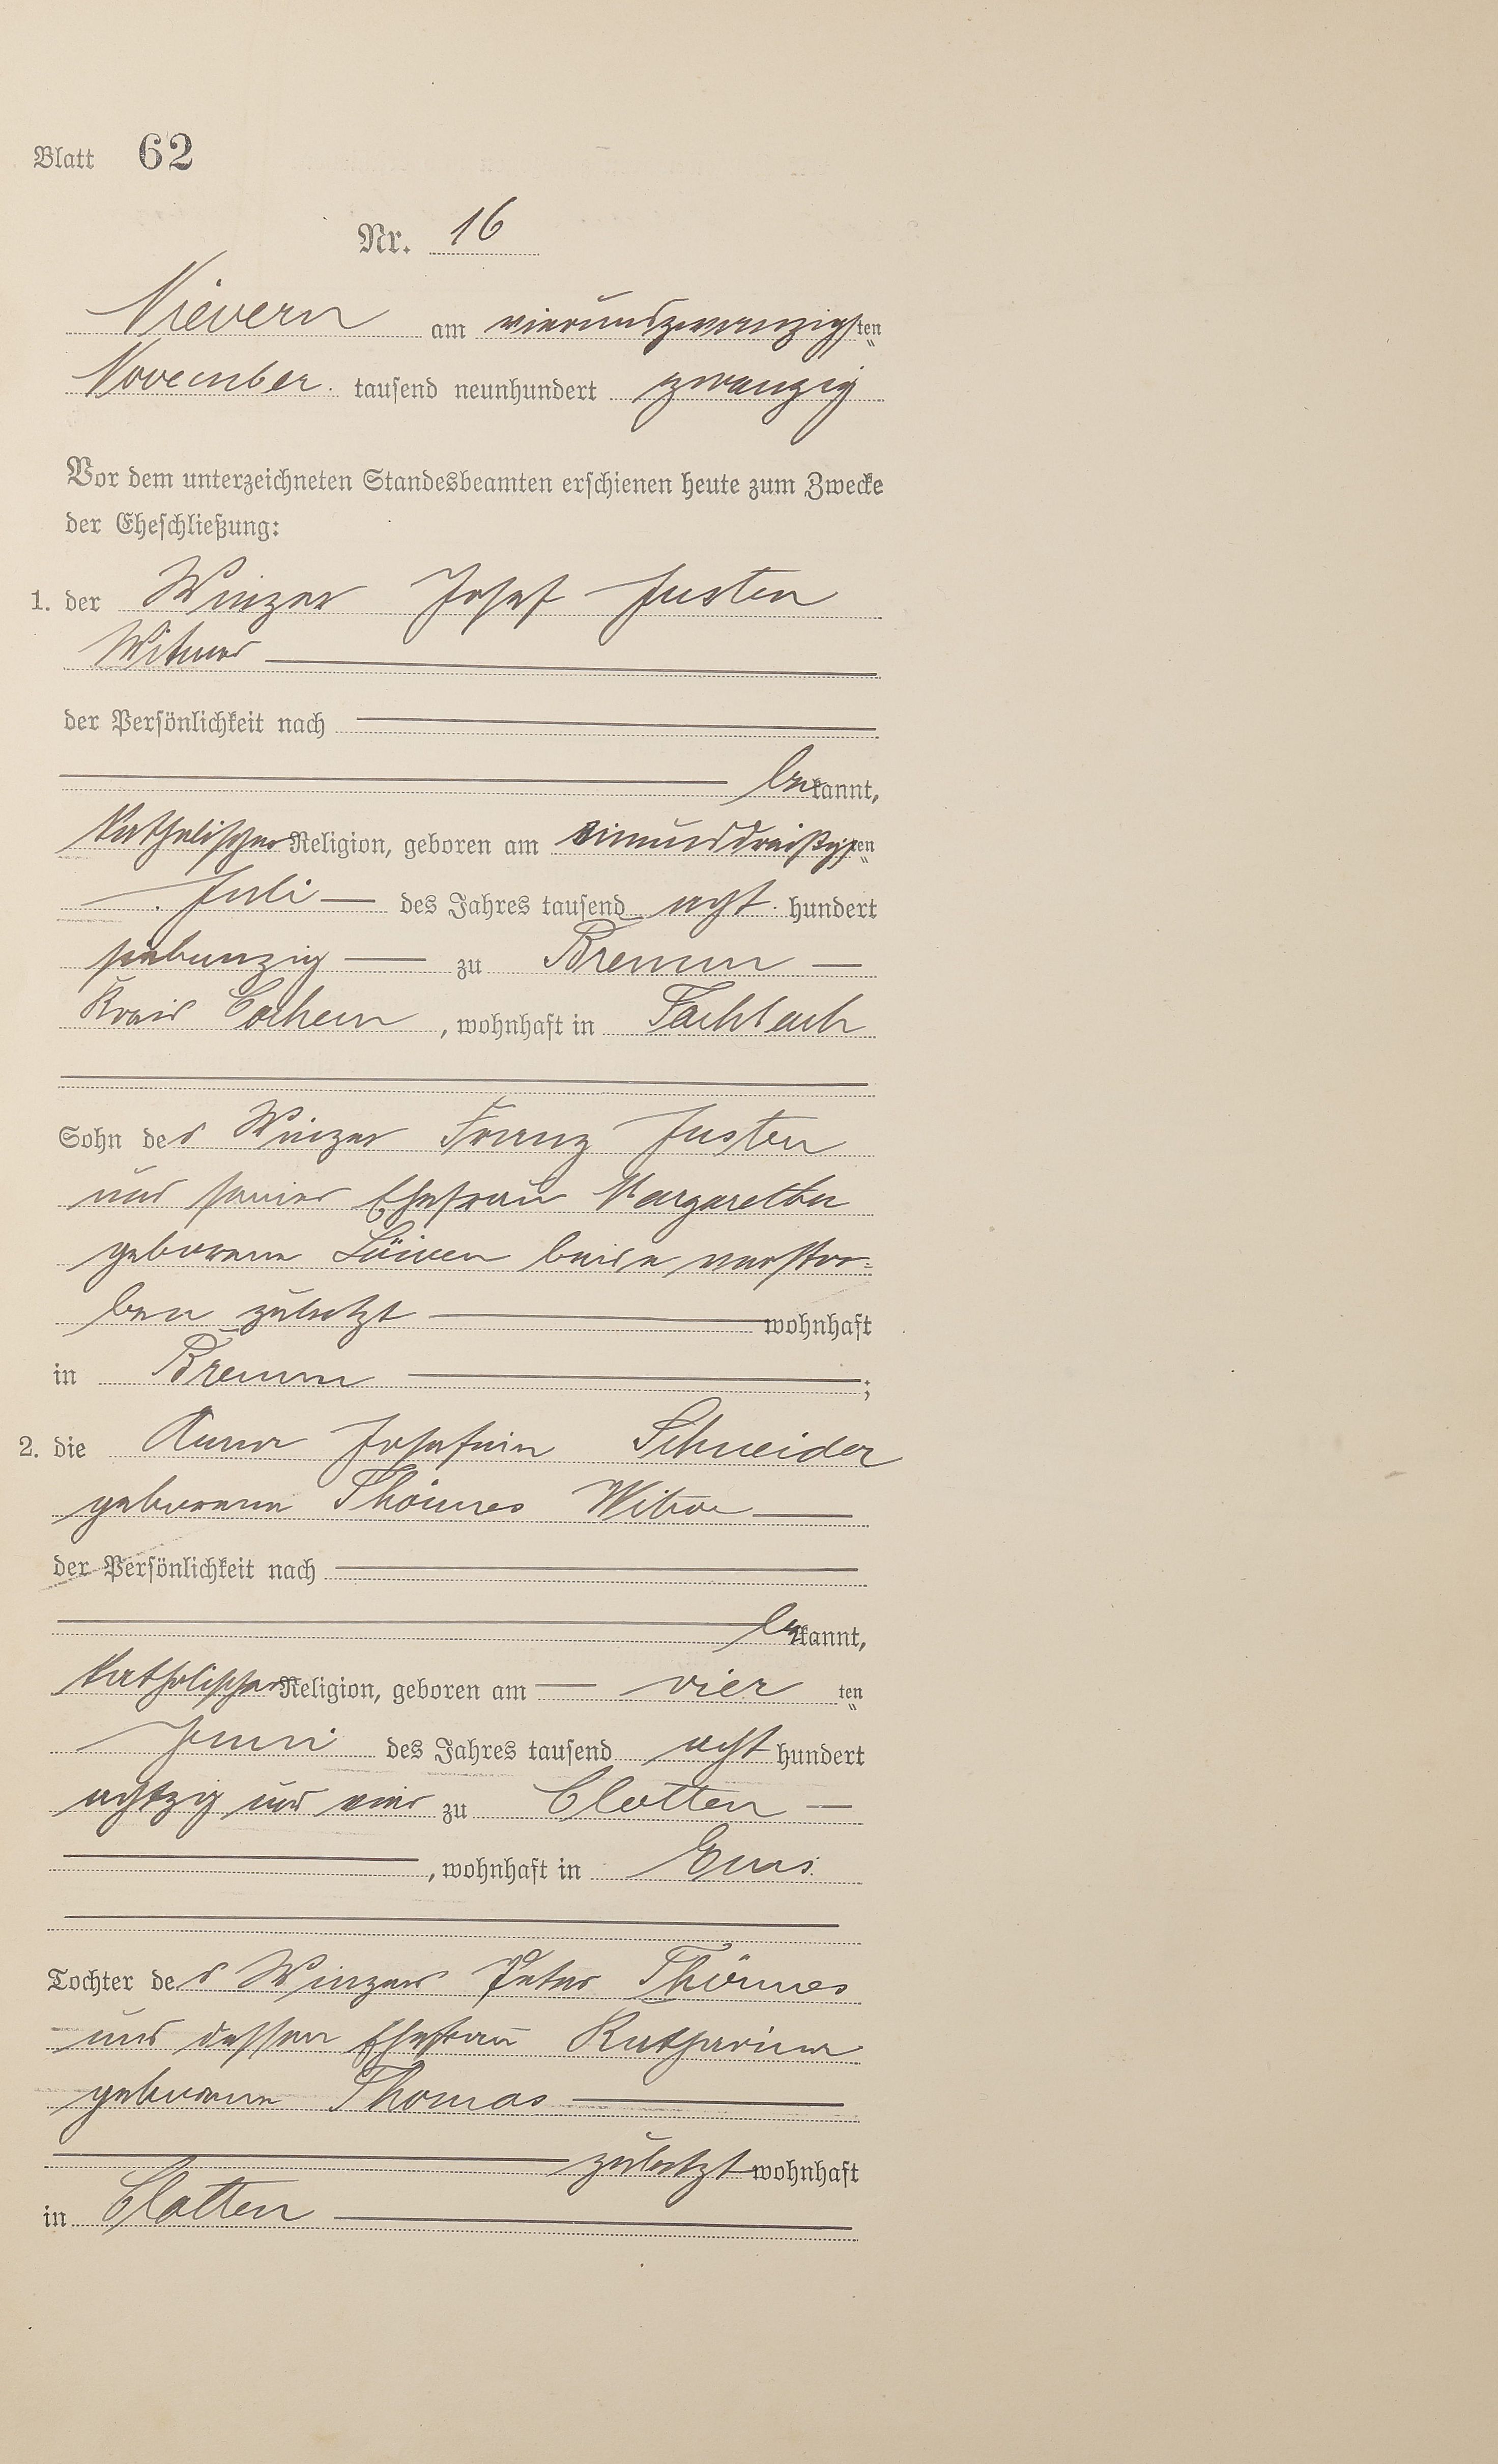 Blatt 62
Nr. 16
Nievern am vierundzwanzigsten
November tausend neunhundert zwanzig
Vor dem unterzeichneten Standesbeamten erschienen heute zum Zwecke
der Eheschließung:
1. der Winzer Josef Justen
Witwer
der Persönlichkeit nach
bekannt,
katholischer Religion, geboren am einunddreißigsten
Juli des Jahres tausend acht hundert
siebunzig zu Bremm
Kreis Cochem, wohnhaft in Fachbach
Sohn des Winzer Franz Justen
und seiner Ehefrau Margaretha
geborene beide verstor=
ben zuletzt wohnhaft
in Bremm ;
2. die Anna Josefein Schneider
geborene Thönnes Witwe
der Persönlichkeit nach
bekannt,
katholischer Religion, geboren am vier ten
Juni des Jahres tausend acht hundert
achtzig und eins zu Clotten
, wohnhaft in Ems
Tochter des Winzers Peter Thönnes
und dessen Ehefrau Katharina
geborene Thomas
zuletzt wohnhaft
in Clotten